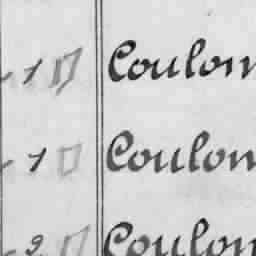 1 Coulom
1 Coulom
2 Coulom